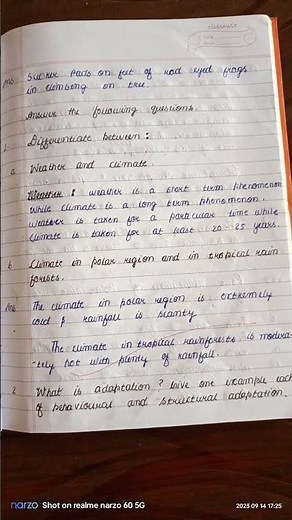 classmate
Date
Page
Ans Sucker pads on feet of red eyed frogs
in climbing on tree
Answer the following questions.
1. Differentiate between :
a Weather and climate.
Weather : weather is a short term phenomenon
while climate is a long term phenomenon.
weather is taken for a particular time while
climate is taken for at least 20-25 years.
b Climate in polar region and in tropical rain
forests.
Ans The climate in polar region is extremely
cold & rainfall is scanty
The climate in tropical rainforests is modera-
-tely hot with plenty of rainfall.
2 What is adaptation? Give one example each
of behavioural and structural adaptation.
narzo Shot on realme narzo 60 5G
2025 09 14 17:25